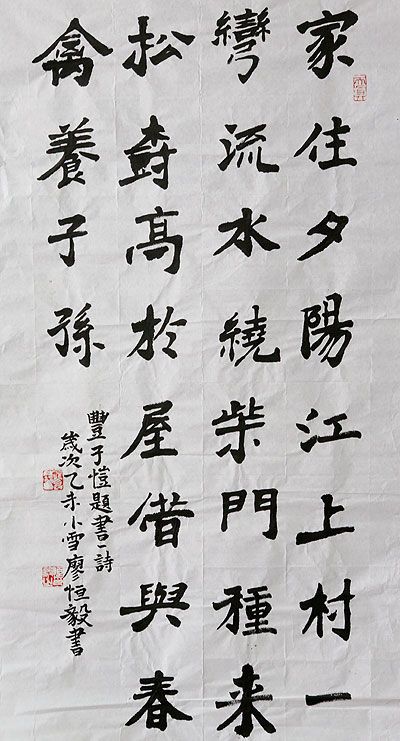 家住夕陽江上村一
彎流水繞柴門種來
松尌高於屋借與春
禽養子孫
豐子愷題書一詩
歲次乙未小雪廖恒毅書